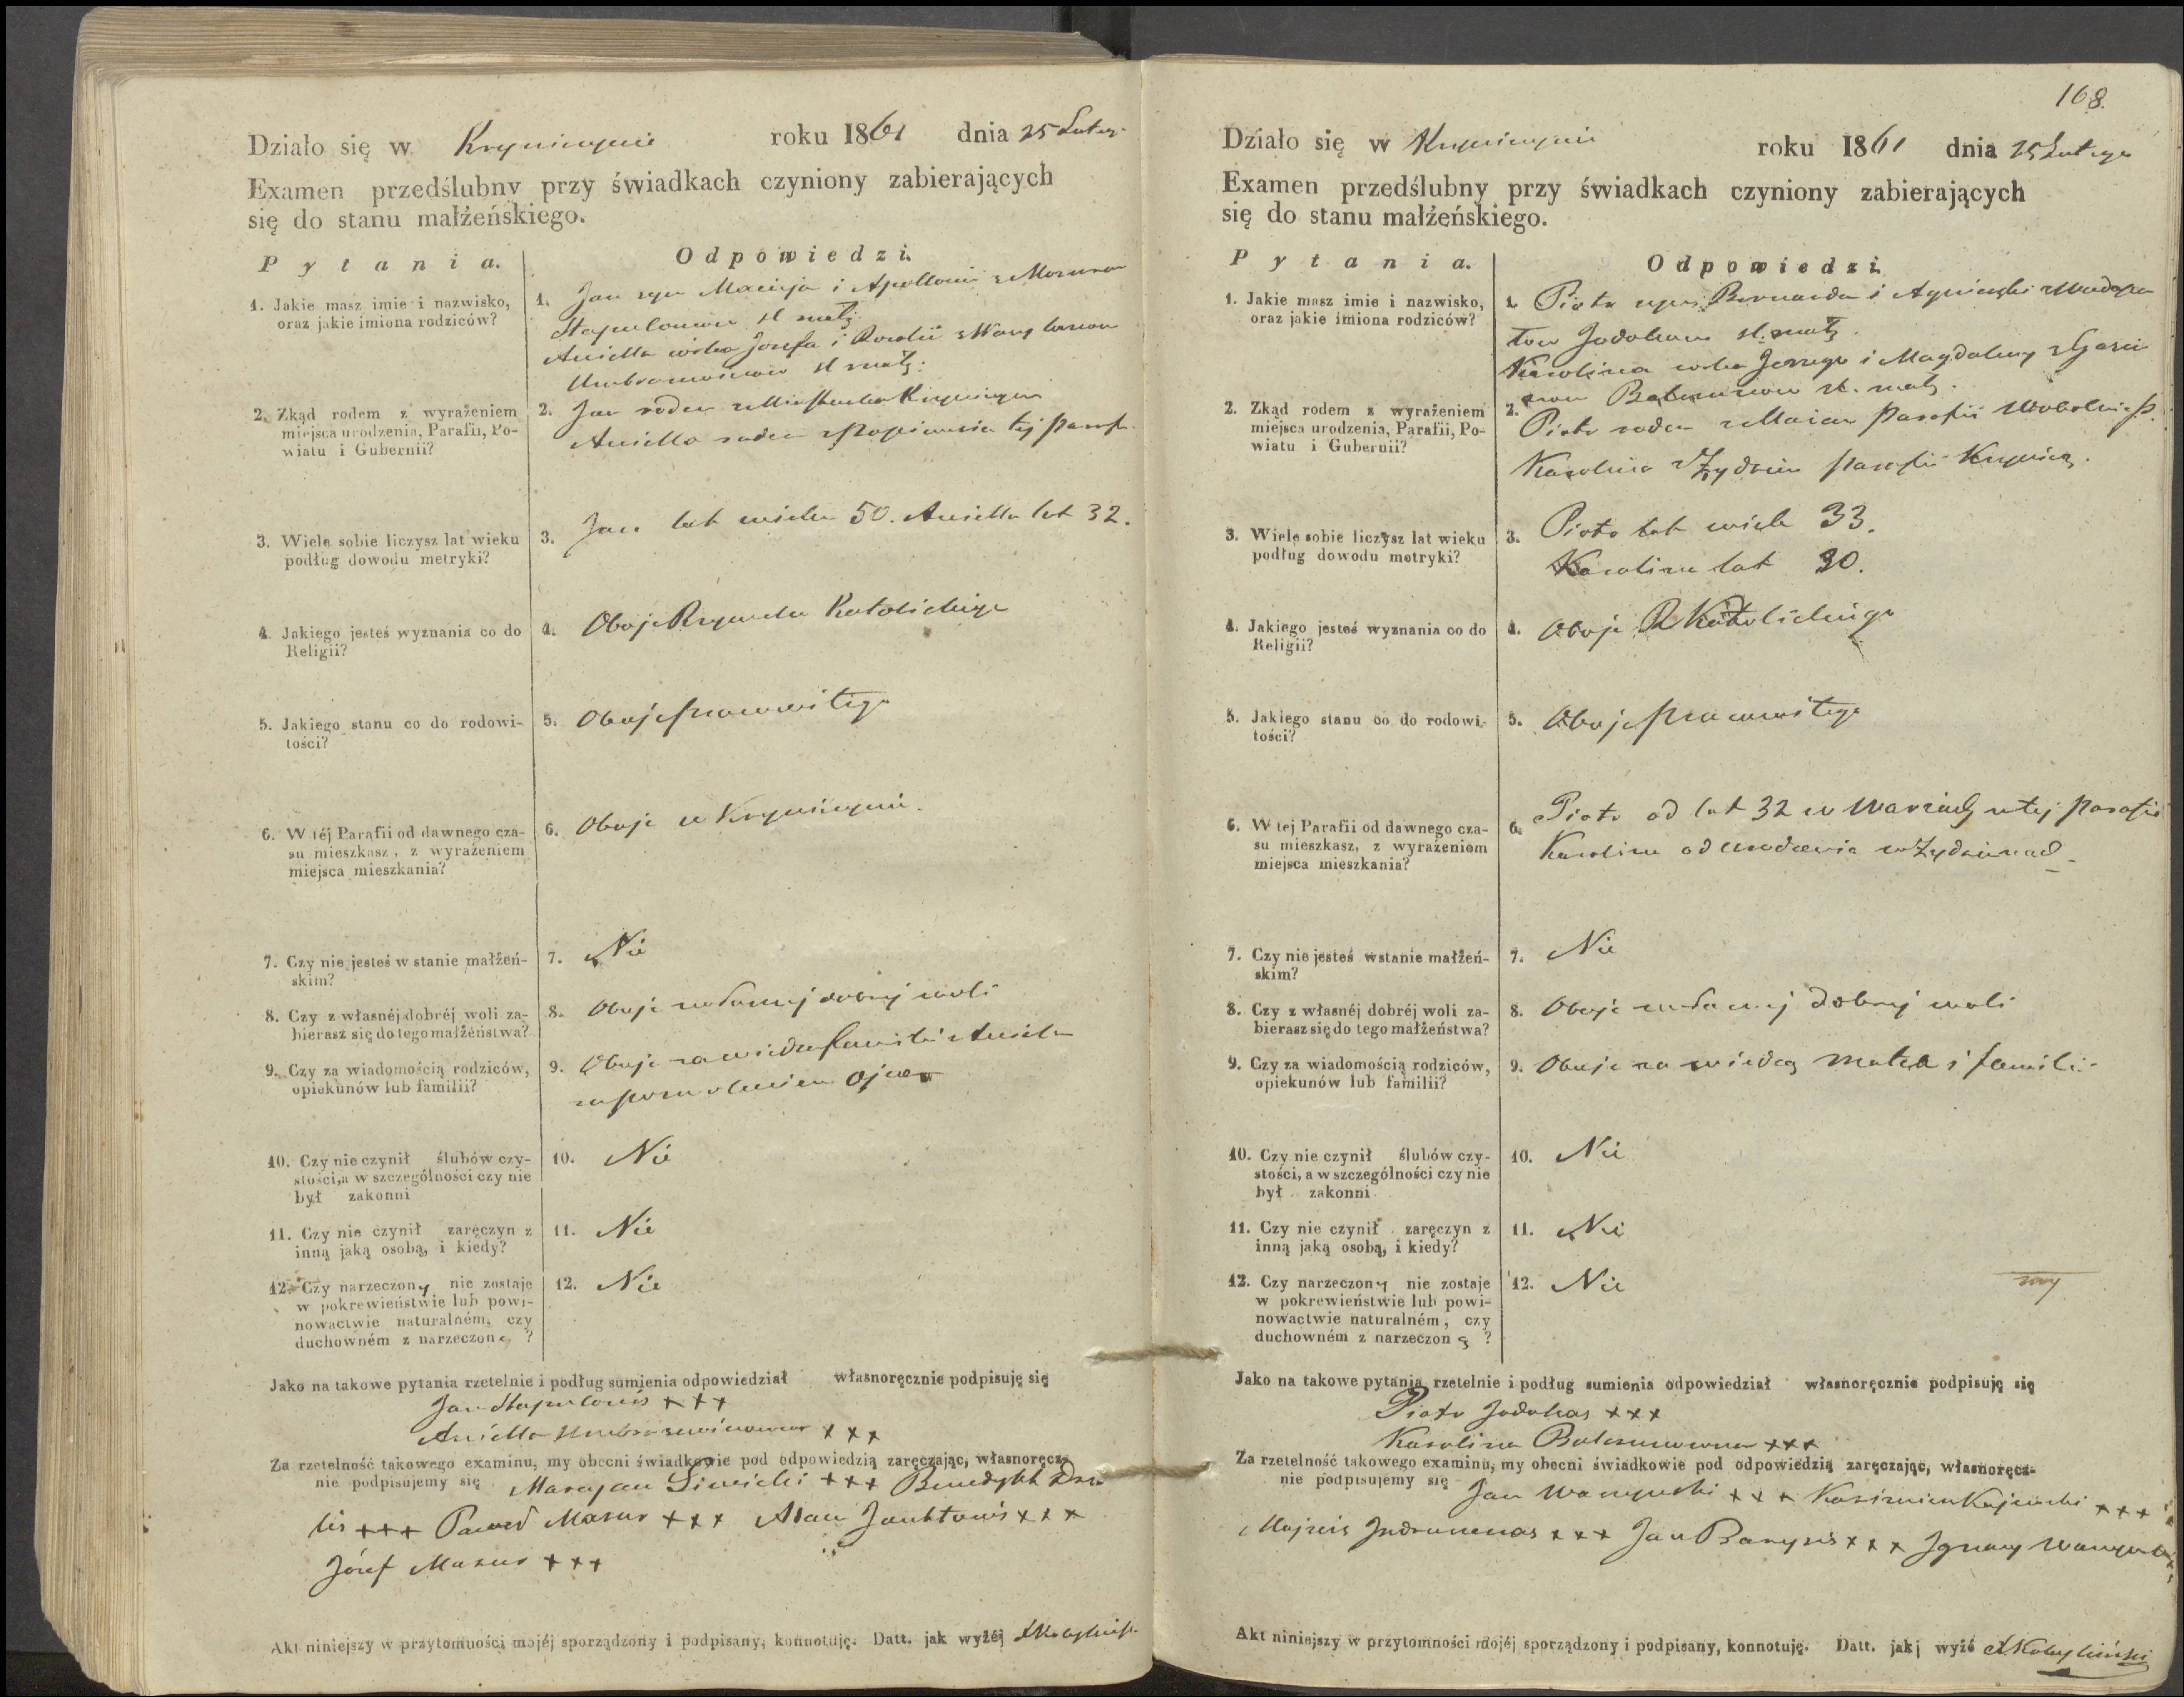 Działo się w Krynicynie roku 1861 dnia 25 Luteg.
Examen przedślubny przy świadkach czyniony zabierających
się do stanu małżeńskiego.
Pytania.
Odpowiedzi.
1. Jakie masz imie i nazwisko,
oraz jakie imiona rodziców?
1. Jan syn Macieja i Apollonii z Mazurow
Stapulonow sl małż.
Aniella córka Jozefa i Rozalii
sl małż:
2. Zkąd rodem z wyrażeniem
miejsca urodzenia, Parafii, Po-
wiatu i Gubernii?
2. Jan rodem z Miasteczka
Aniella rodem tej Paraf.
3. Wiele sobie liczysz lat wieku
podług dowodu metryki?
3. Jan lat wieku 50. Aniella lat 32.
4. Jakiego jesteś wyznania co do
Religii?
4. Oboje Rzymsko Katolickiego
5. Jakiego stanu co do rodowi-
tości?
5. Oboje prawowitego
6. W téj Parafii od dawnego cza-
su mieszkasz, z wyrażeniem
miejsca mieszkania?
6. Oboje w Krynicynie.
7. Czy nie jesteś w stanie małżeń-
skim?
7. Nie
8. Czy z własnéj dobréj woli za-
bierasz się do tego małżeństwa?
8. Oboje z własnej dobrej woli
9. Czy za wiadomością rodziców,
opiekunów lub familii?
9. Oboje za wiedzą familii Aniela
za pozwoleniem Ojca
10. Czy nie czynił ślubów czy-
stości, a w szczególności czy nie
był zakonni
10. Nie
11. Czy nie czynił zaręczyn z
inną jaką osobą, i kiedy?
11. Nie
12. Czy narzeczony nie zostaje
w pokrewieństwie lub powi-
nowactwie naturalném, czy
duchowném z narzeczoną ?
12. Nie
Jako na takowe pytania rzetelnie i podług sumienia odpowiedział własnoręcznie podpisuję się
Jan Stapulonis +++
Aniella +++
Za rzetelność takowego examinu, my obecni świadkowie pod odpowiedzią zaręczając, własnoręcz-
nie podpisujemy się Maryan Siwicki +++ Benedykt
+++ Paweł Mazur +++ Adam +++
Józef Mazur +++
Akt niniejszy w przytomności mojéj sporządzony i podpisany, konnotuję. Datt. jak wyżéj
168.
Działo się w Krynicynie roku 1861 dnia 25 Lutego
Examen przedślubny przy świadkach czyniony zabierających
się do stanu małżeńskiego.
Pytania.
Odpowiedzi.
1. Jakie masz imie i nazwisko,
oraz jakie imiona rodziców?
1. Piotr syn Bernarda i Agnieszki
tow Jodokasow sl: małż.
Karolina córka Jerzego i Magdaleny
sl. małż.
2. Zkąd rodem z wyrażeniem
miejsca urodzenia, Parafii, Po-
wiatu i Gubernii?
2. Piotr rodem Parafii
Karolina z Żydziu Parafii
3. Wiele sobie liczysz lat wieku
podług dowodu metryki?
3. Piotr lat wieku 33.
Karolina lat 30.
4. Jakiego jesteś wyznania co do
Religii?
4. Oboje R Katolickiego
5. Jakiego stanu co do rodowi-
tości?
5. Oboje prawowitego
6. W tej Parafii od dawnego cza-
su mieszkasz, z wyrażeniem
miejsca mieszkania?
6. Piotr od lat 32 w w tej Parafii
Karolina od urodzenia w
7. Czy nie jesteś w stanie małżeń-
skim?
7. Nie
8. Czy z własnéj dobréj woli za-
bierasz się do tego małżeństwa?
8. Oboje z własnej dobrej woli
9. Czy za wiadomością rodziców,
opiekunów lub familii?
9. Oboje za wiedzą matek i familii
10. Czy nie czynił ślubów czy-
stości, a w szczególności czy nie
był zakonni
10. Nie
11. Czy nie czynił zaręczyn z
inną jaką osobą, i kiedy?
11. Nie
12. Czy narzeczony nie zostaje
w pokrewieństwie lub powi-
nowactwie naturalném, czy
duchowném z narzeczoną ?
12. Nie
Jako na takowe pytania rzetelnie i podług sumienia odpowiedział własnoręcznie podpisuję się
Piotr Jodokas +++
Karolina +++
Za rzetelność takowego examinu, my obecni świadkowie pod odpowiedzią zaręczając, własnoręcz-
nie podpisujemy się Jan +++ Kazimierz +++
+++ Jan +++ Ignacy
Akt niniejszy w przytomności mojéj sporządzony i podpisany, konnotuję. Datt. jakj wyżé Kobyliński